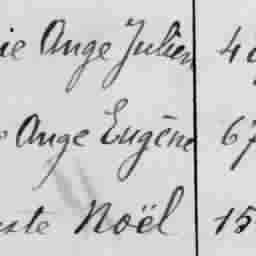 ie Ange Julien 4
Ange Eugène 67
ste Noël 15